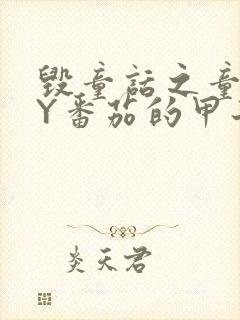 毁童话之童
Y番茄的甲
炎天君